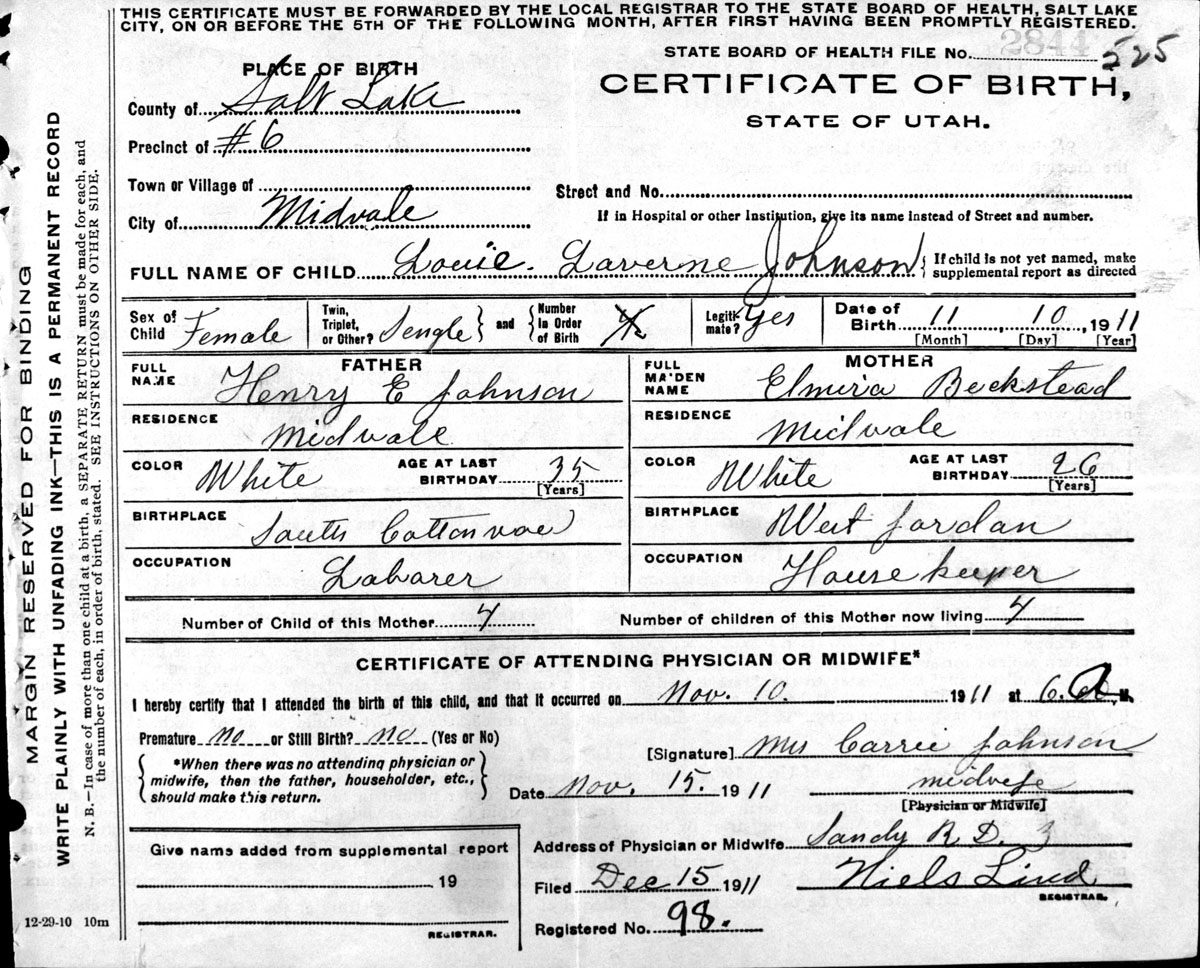 THIS CERTIFICATE MUST BE FORWARDED BY THE LOCAL REGISTRAR TO THE STATE BOARD OF HEALTH, SALT LAKE
CITY, ON OR BEFORE THE 5TH OF THE FOLLOWING MONTH, AFTER FIRST HAVING BEEN PROMPTLY REGISTERED.
STATE BOARD OF HEALTH FILE No. 2844 525
PLACE OF BIRTH
CERTIFICATE OF BIRTH,
STATE OF UTAH.
County of Salt Lake
Precinct of #6
Town or Village of
Street and No.
City of Midvale
If in Hospital or other Institution, give its name instead of Street and number.
FULL NAME OF CHILD Louie Laverne Johnson { If child is not yet named, make
supplemental report as directed
Sex of Child Female
Twin, Triplet, or Other? Sengle } and { Number in Order of Birth 4
Legitimate? Yes
Date of Birth 11, 10, 1911
[Month] [Day] [Year]
FATHER
MOTHER
FULL NAME Henry E Johnson
FULL MAIDEN NAME Elmira Beckstead
RESIDENCE Midvale
RESIDENCE Midvale
COLOR White AGE AT LAST BIRTHDAY 35 [Years]
COLOR White AGE AT LAST BIRTHDAY 26 [Years]
BIRTHPLACE South Cottonwod
BIRTHPLACE West Jordan
OCCUPATION Labarer
OCCUPATION House keeper
Number of Child of this Mother 4 Number of children of this Mother now living 4
CERTIFICATE OF ATTENDING PHYSICIAN OR MIDWIFE*
I hereby certify that I attended the birth of this child, and that it occurred on Nov. 10. 1911 at 6. a M.
Premature no or Still Birth? no (Yes or No)
[Signature] Mrs Carrie Johnson
*When there was no attending physician or
midwife, then the father, householder, etc.,
should make this return.
Date Nov. 15. 1911 midwife
[Physician or Midwife]
Address of Physician or Midwife Sandy R D. 3
Give name added from supplemental report
19
REGISTRAR.
Filed Dec 15 1911 Niels Lind
REGISTRAR.
Registered No. 98.
12-29-10 10m
MARGIN RESERVED FOR BINDING
WRITE PLAINLY WITH UNFADING INK—THIS IS A PERMANENT RECORD
N. B.—In case of more than one child at a birth, a SEPARATE RETURN must be made for each, and
the number of each, in order of birth, stated. SEE INSTRUCTIONS ON OTHER SIDE.